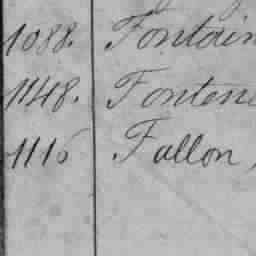 1088. Fontain
1148. Fonten
1116 Fallon,